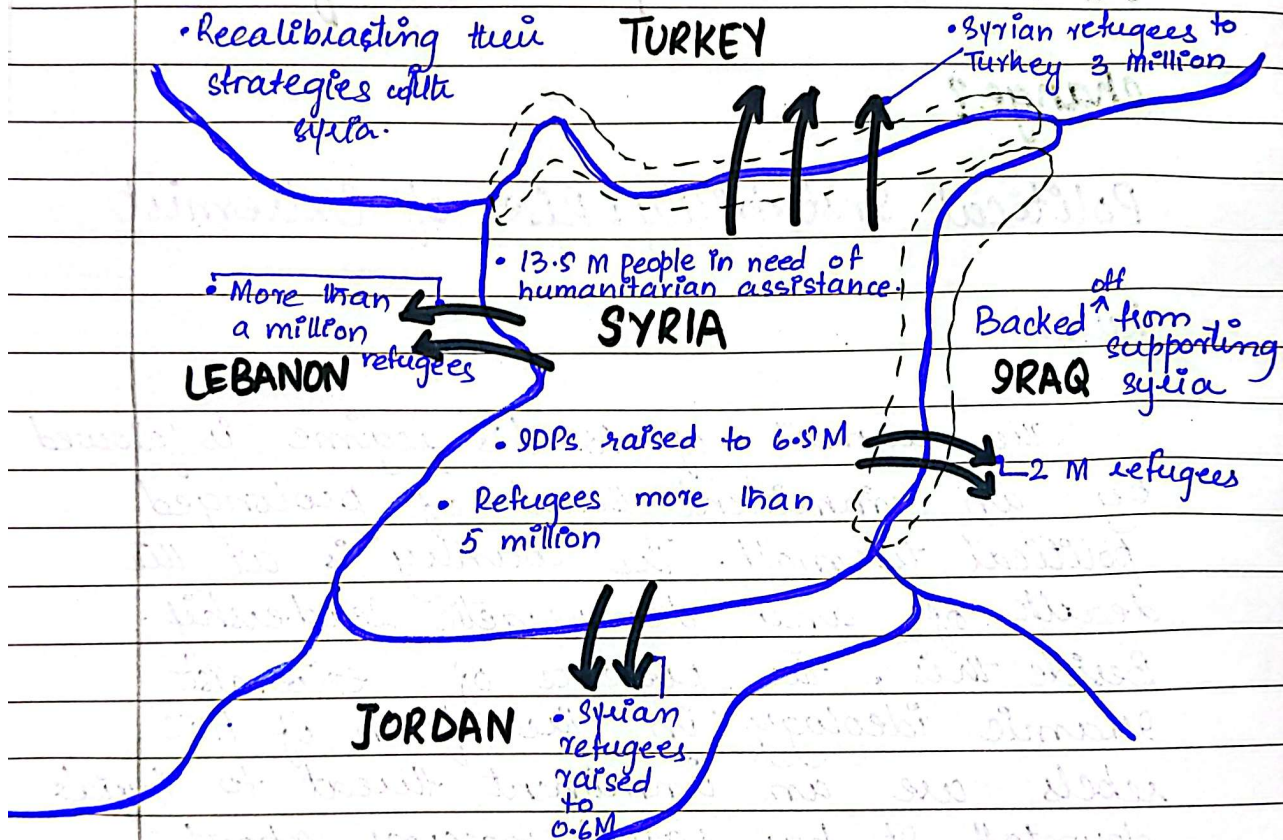 • Recalibrasting their
strategies with
syria.
TURKEY
• Syrian refugees to
Turkey 3 million
• 13.5 M people in need of
humanitarian assistance.
SYRIA
• More than
a million
refugees
LEBANON
Backed off from
supporting
syria
IRAQ
• IDPs raised to 6.5 M
2 M refugees
• Refugees more than
5 million
JORDAN
• Syrian
refugees
raised
to
0.6M